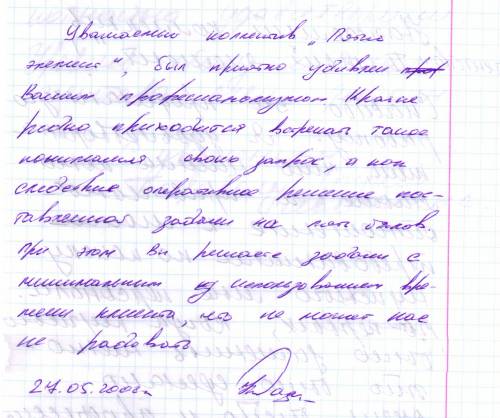 Уважаемый коллектив "Пятый
элемент", был приятно удивлен
Вашим профессионализмом. Крайне
редко приходится встречать такое
понимания своих запрос, а как
следствие оперативное решение пос-
тавленной задачи на пять балов
при этом Вы решаете задачи с
минимальным использованием вре-
мени клиента, что не может нас
не радовать
27.05.2006г